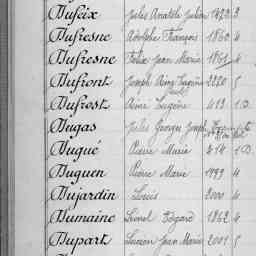 Dufeix Jules Anatole Julien 1493 3
Dufresne Adolphe François 1860 4
Dufresne Felix Jean Marie 1861 5
Dufront Joseph Aimé Eugène 2220 5
Dufrost Aimé Eugène 413 1.D.
Dugas Jules Georges Joseph
Dugué Pierre Marie 414 1.D.
Duguen Pierre Marie 1999 4
Dujardin Louis 2000 4
Dumaine Lionel Edgard 1862 4
Dupart Lucien Jean Marie 2001 5